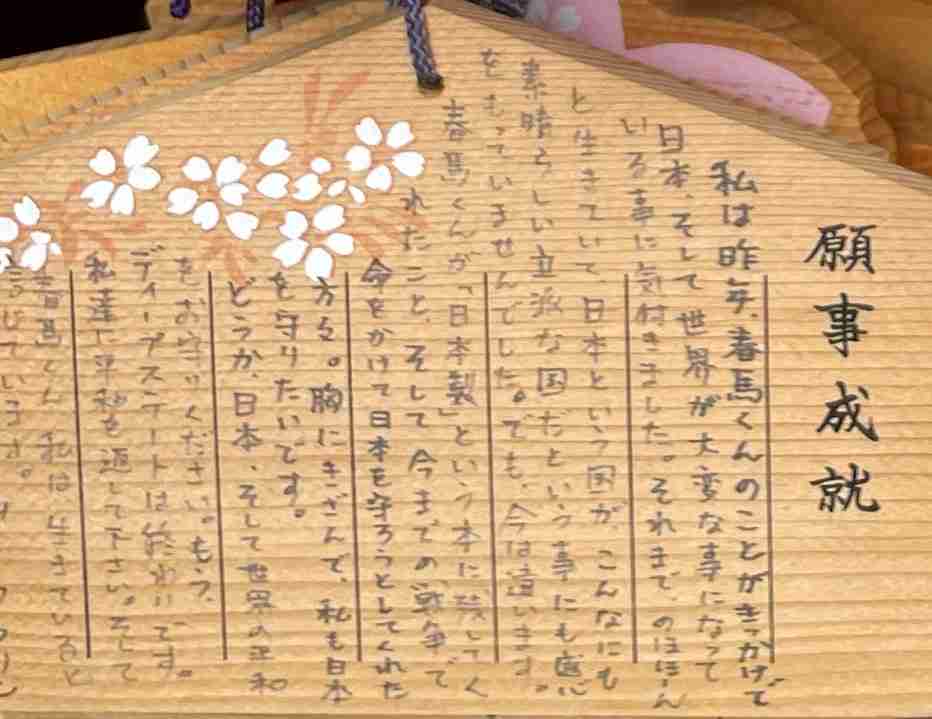 願事成就
私は昨年、春馬くんのことがきっかけで
日本、そして世界が大変な事になって
いる事に気付きました。それまで、のほほーん
と生きていて、日本という国が、こんなにも
素晴らしい立派な国だという事にも感心
をもっていませんでした。でも、今は違います。
春馬くんが「日本製」という本に残してく
れたこと、そして今までの戦争で
命をかけて日本を守ろうとしてくれた
方る。胸にきざんで、私も日本
を守りたいです。
どうか、日本、そして世界の平和
をお守りください。もう、
ディープステートは終わりです。
私達に平和を返して下さい。そして
春馬くん 私は生きていると
信じています。